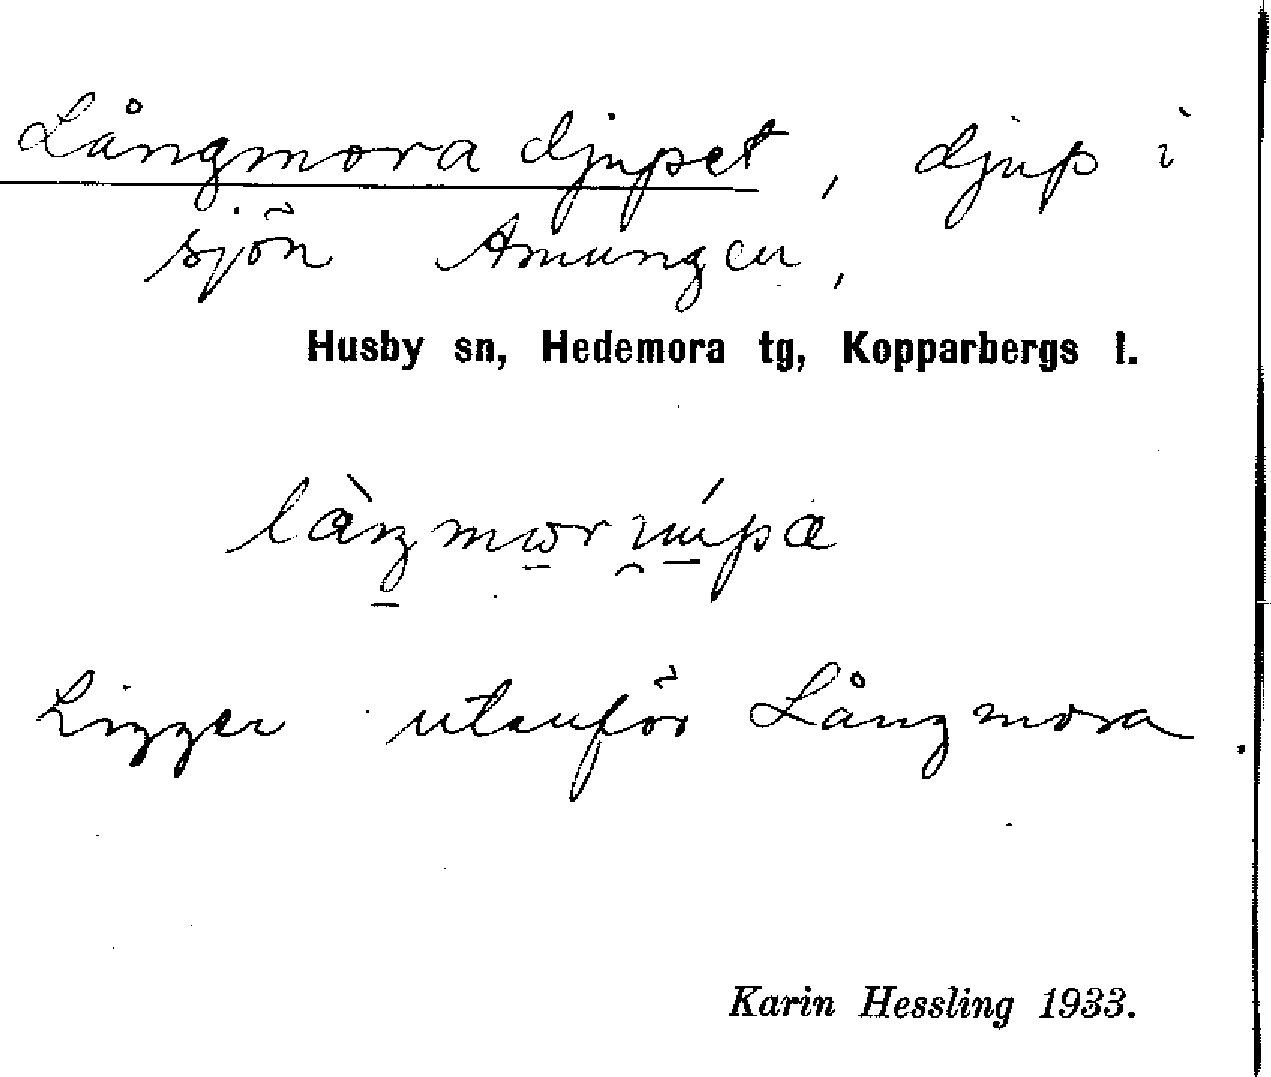 Långmora djupet, djup i
sjön Amungen,
Husby sn, Hedemora tg, Kopparbergs l.
Ligger utanför Långmora.
Karin Hessling 1933.